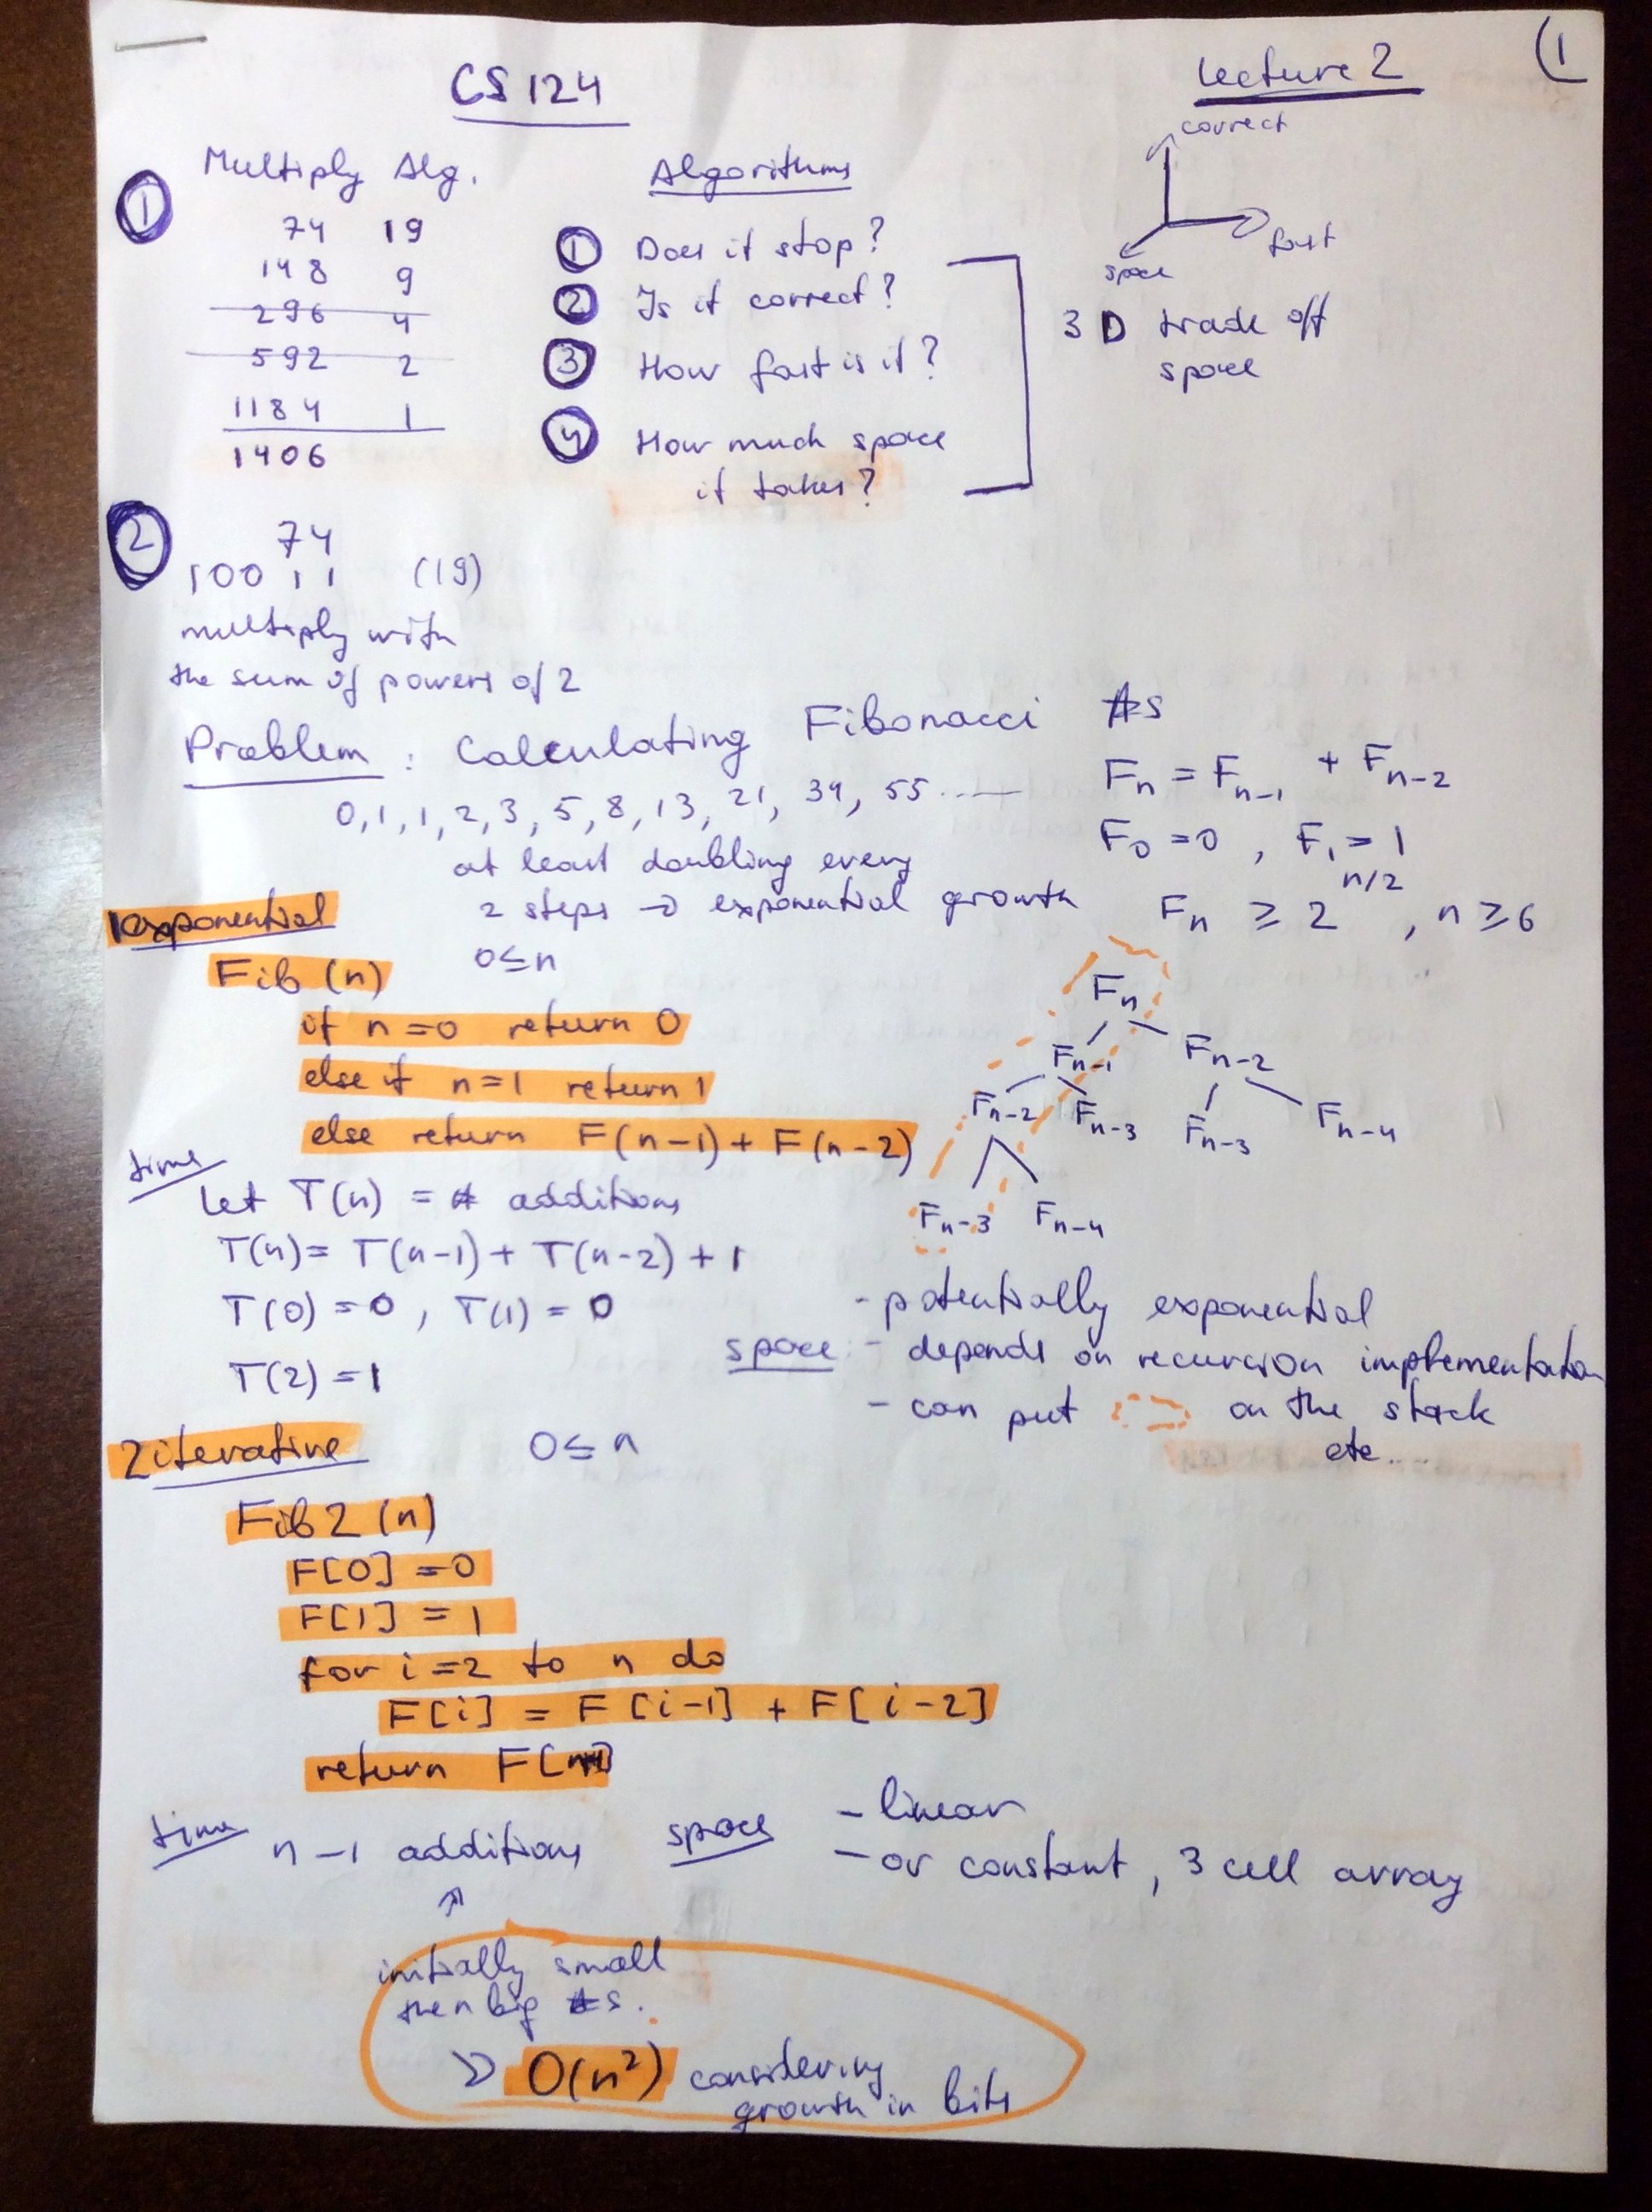 CS 124
Lecture 2
(1
correct
fast
space
① Multiply Alg.
74 19
148 9
296 4
592 2
1184 1
1406
Algorithms
① Does it stop?
② Is it correct?
③ How fast is it?
④ How much space
it takes?
3D trade off
space
② 74
10011 (19)
multiply with
the sum of powers of 2
Problem: Calculating Fibonacci #s
0, 1, 1, 2, 3, 5, 8, 13, 21, 34, 55.....
at least doubling every
2 steps → exponential growth
Fn = Fn-1 + Fn-2
F0 = 0, F1 = 1
Fn ≥ 2^n/2, n ≥ 6
1 exponential
Fib (n) 0≤n
if n=0 return 0
else if n=1 return 1
else return F(n-1) + F(n-2)
Fn
Fn-1 Fn-2
Fn-2 Fn-3 Fn-3 Fn-4
Fn-3 Fn-4
time
Let T(n) = # additions
T(n) = T(n-1) + T(n-2) + 1
T(0) = 0, T(1) = 0
T(2) = 1
space:
- potentially exponential
- depends on recursion implementation
- can put on the stack
etc...
2 iterative 0≤n
Fib2 (n)
F[0] = 0
F[1] = 1
for i=2 to n do
F[i] = F[i-1] + F[i-2]
return F[n]
time n-1 additions
space - linear
- or constant, 3 cell array
initially small
then big #s.
O(n²) considering
growth in bits